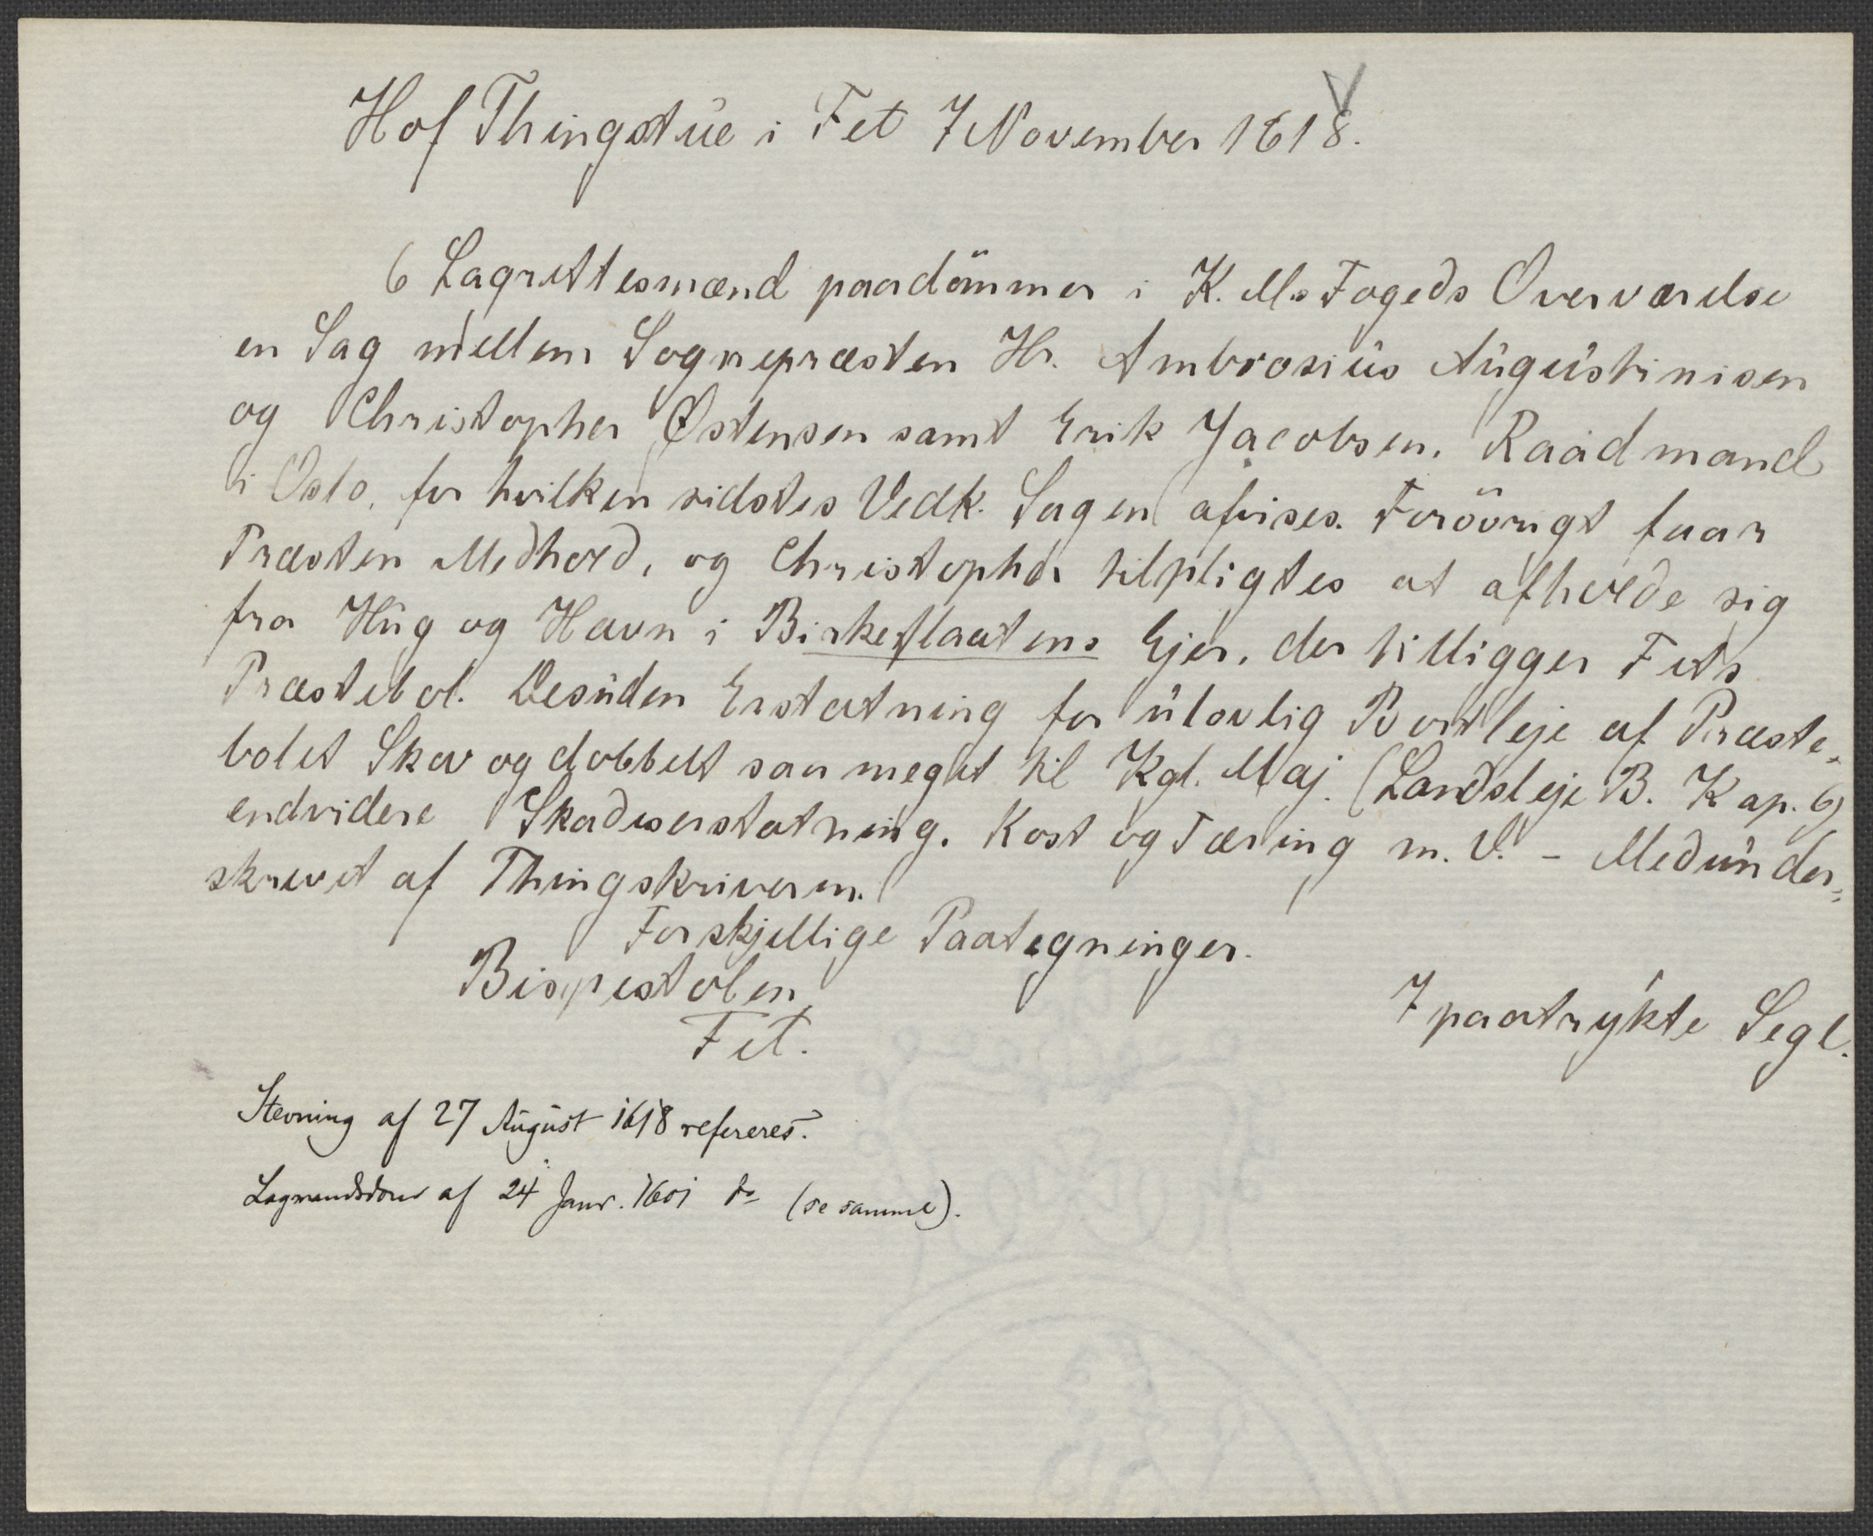 Hof Thingstue i Fet 7 November 1618.
6 Lagrettesmænd paadömmer i K. M.s Fogeds Overværelse
en Sag mellem Sognepræsten Hr. Ambrosius Augustinisen
og Christopher Østensen samt Erik Jacobsen, Raadmand
i Oslo, for hvilken sidstes Vedk. Sagen afvises. Foröovrigt faar
Præsten Medhold, og Christopher tilpligtes at afholde sig
fra Hug og Havn i Birkeflaatens Ejer, der tilligger Fets
Præstebol. Desuden Erstatning for ulovlig Bortleje af Præste-
bolet Skov og dobbelt saa meget til Kgl. Maj. (Landsleje B. Kap. 6)
endvidere Skadeserstatning, Kost og Tæring m. V. - Medunder=
skrevet af Thingskriveren.
Forskjellige Paategninger.
Bispestolen
Fet.
7 paatrykte Segl.
Stevning af 27 August 1618 refereres.
Lagmandsdom af 24 Janr. 1601 do (se samme).